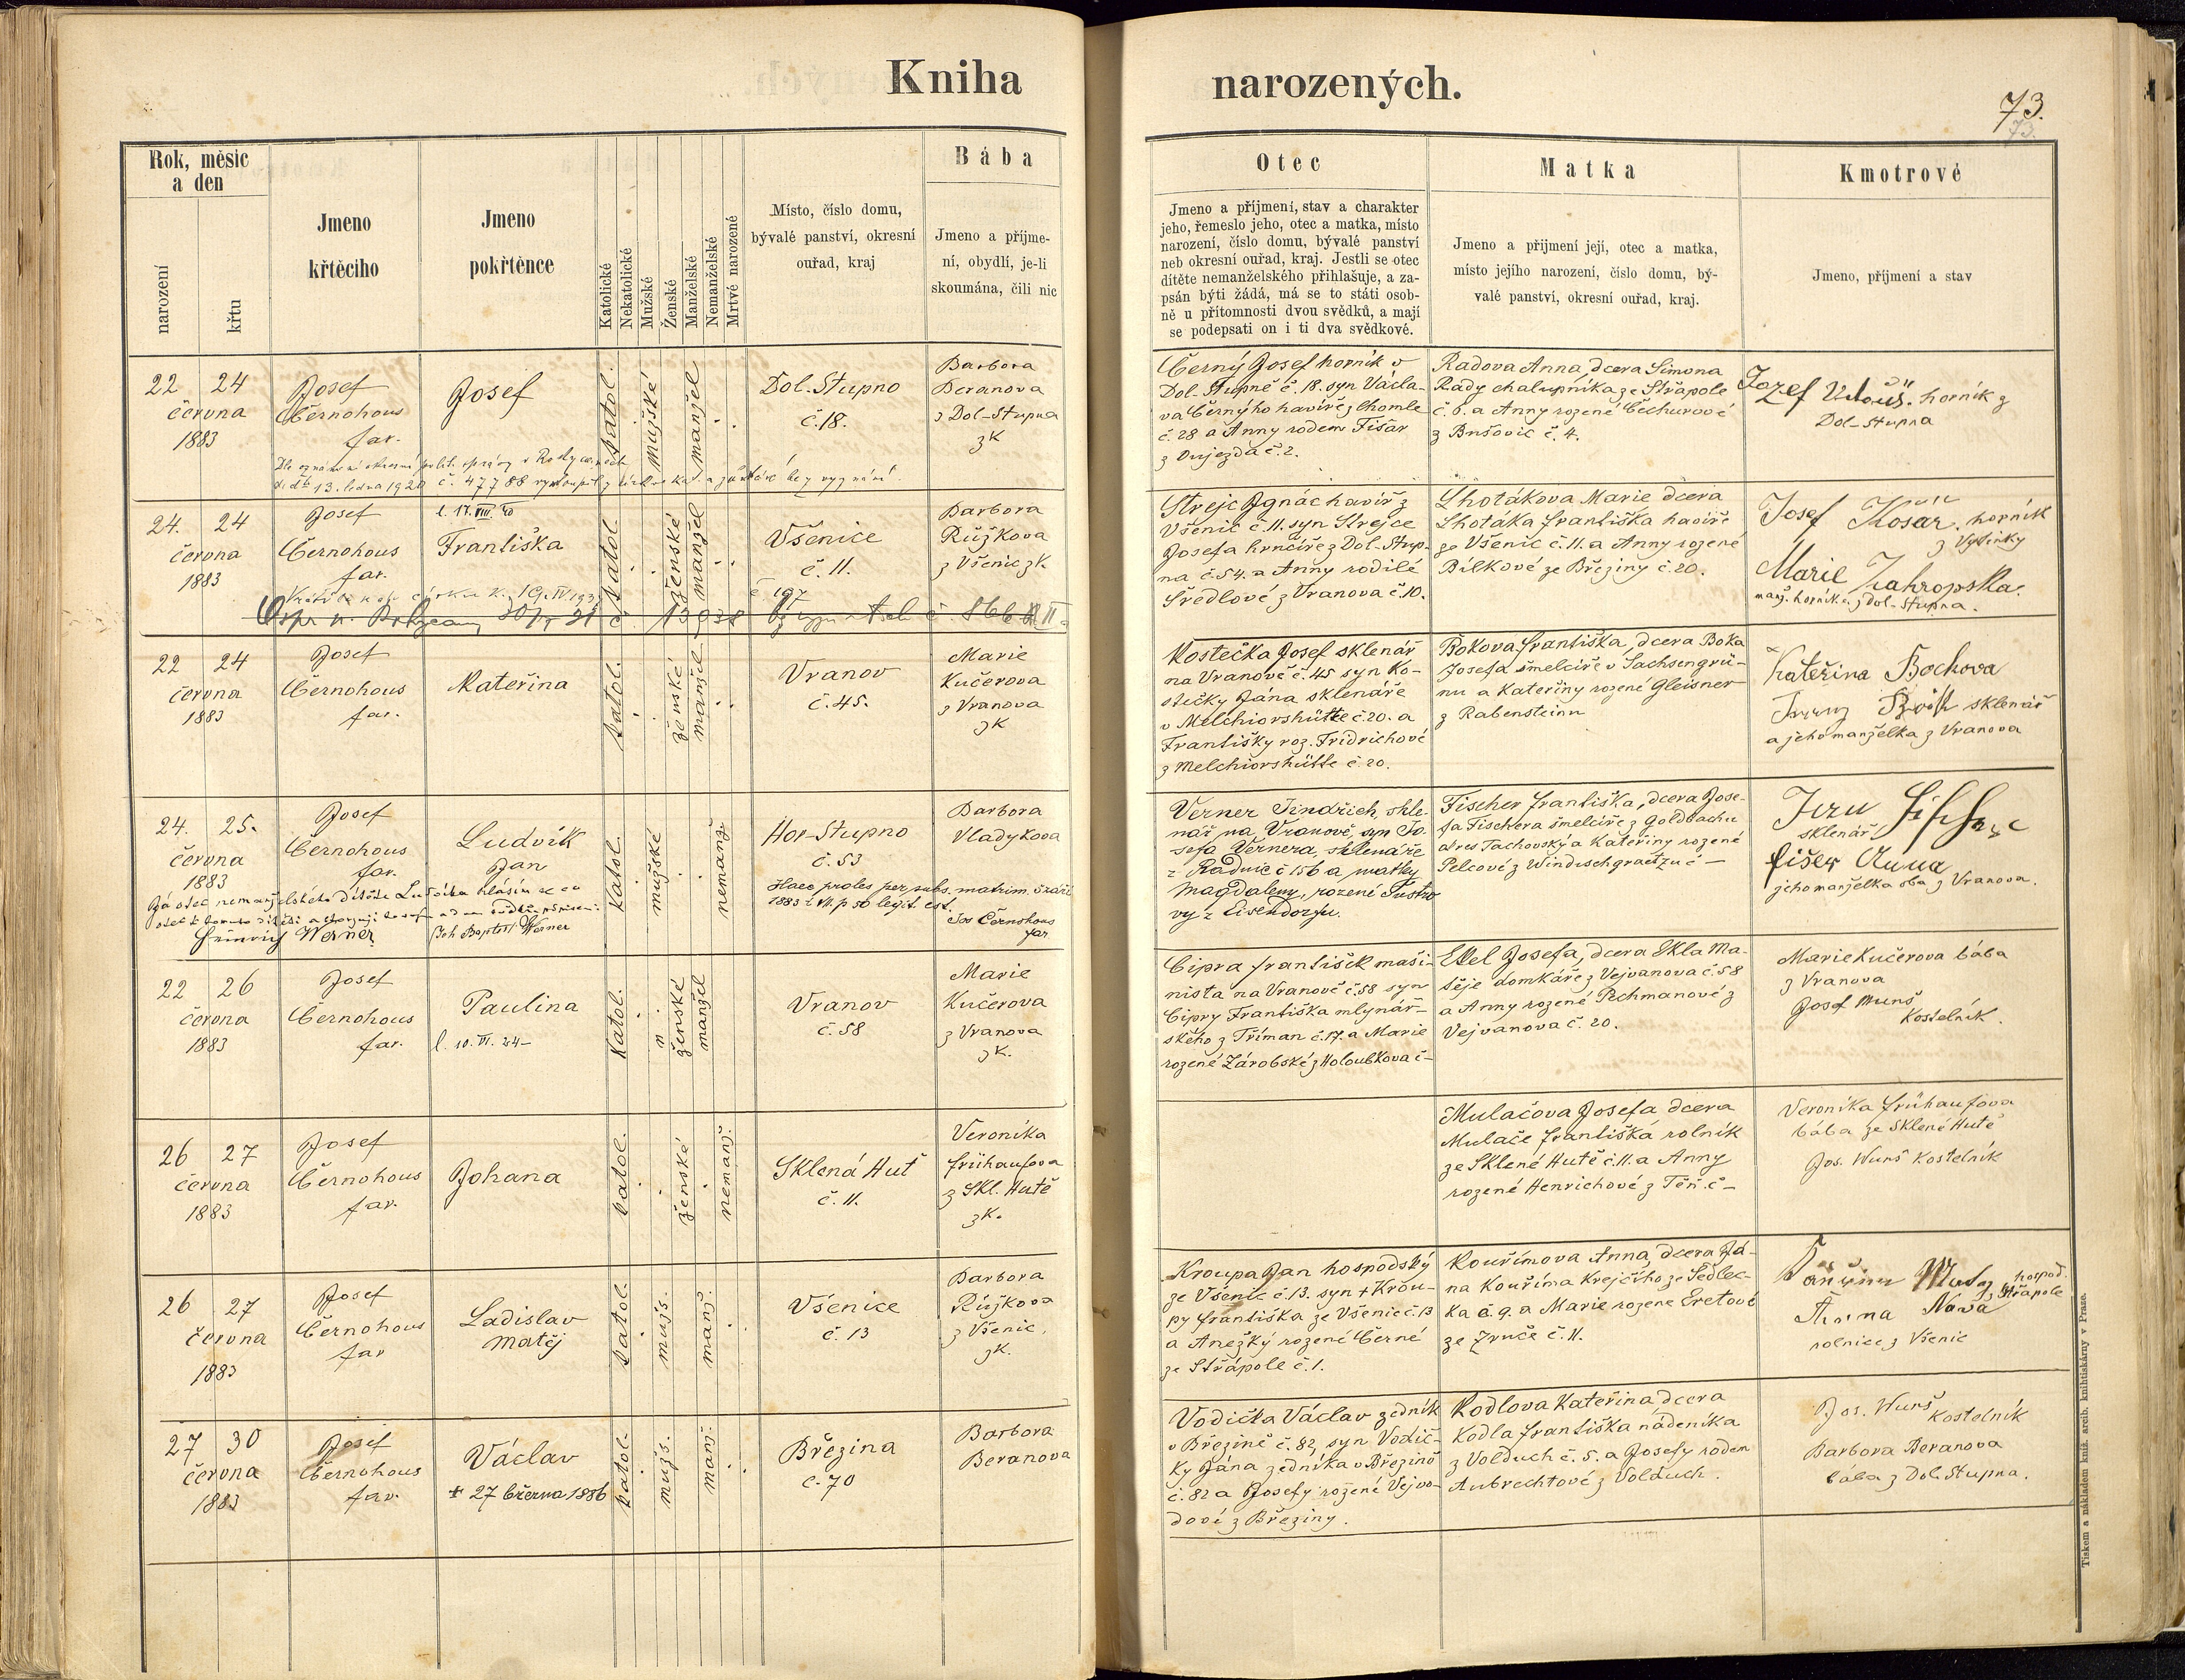 Kniha narozených.
73.
73.
Rok, měsíc a den
narození
křtu
Jmeno křtěcího
Jmeno pokřtěnce
Katolické
Nekatolické
Mužské
Ženské
Manželské
Nemanželské
Mrtvě narozené
Místo, číslo domu,
bývalé panství, okresní
ouřad, kraj
Bába
Jmeno a příjme-
ní, obydlí, je-li
skoumána, čili nic
Otec
Jmeno a příjmení, stav a charakter
jeho, řemeslo jeho, otec a matka, místo
narození, číslo domu, bývalé panství
neb okresní ouřad, kraj. Jestli se otec
dítěte nemanželského přihlašuje, a za-
psán býti žádá, má se to státi osob-
ně u přítomnosti dvou svědků, a mají
se podepsati on i ti dva svědkové.
Matka
Jmeno a přijmení její, otec a matka,
místo jejího narození, číslo domu, bý-
valé panství, okresní ouřad, kraj.
Kmotrové
Jmeno, příjmení a stav
22 24
června
1883
Josef
Černohous
far.
Josef
katol.
mužské
manžel
Dol. Stupno
č. 18.
Barbora
Beranova
z Dol-Stupna
zk
Černý Josef horník v
Dol. Stupně č. 18. syn Václa-
va Černýho havíře z Chomle
č. 28 a Anny rodem Fišar
z Oujezda č. 2.
Radova Anna, dcera Šimona
Rady chalupníka ze Střapole
č. 6. a Anny rozené Čechurové
z Bušovic č. 4.
Jozef horník z
Dol-Stupna
13. ledna 1920 č. 47788
24. 24
června
1883
Josef
Černohous
far.
l. 17. VIII. 40
Františka
katol.
ženské
manžel
Všenice
č. 11.
Barbora
Růžkova
z Všenic zk.
Strejc Ignác havíř z
Všenic č. 11. syn Strejce
Josefa hrnčíře z Dol. Stup-
na č. 54. a Anny rodilé
Šředlové z Vranova č. 10.
Lhotákova Marie dcera
Lhotáka Františka havíře
ze Všenic č. 11. a Anny rozené
Bílkové ze Březiny č. 20.
Josef Kosár, horník
z Vysinky
Marie
manž. horníka z Dol. Stupna.
22 24
června
1883
Josef
Černohous
far.
Kateřina
katol.
ženské
manžel
Vranov
č. 45.
Marie
Kučerova
z Vranova
zk
Kostečka Josef sklenář
na Vranově č. 45 syn Ko-
stečky Jána sklenáře
v Melchiorshütte č. 20. a
Františky roz. Fridrichové
z Melchiorshütte č. 20.
Bokova Františka, dcera Boka
Josefa šmelcíře v Sachsengrü-
nu a Kateřiny rozené Gleisner
z Rabensteinu
Kateřina Bockova
sklenář
a jeho manželka z Vranova
24. 25.
června
1883
Josef
Černohous
far.
Ludvík
Jan
katol.
mužské
nemanž.
Hoř-Stupno
č. 53
Barbora
Vladykova
Haec proles per subs. matrim.
1883 legit. est.
Jos Černohous
far
Já otec nemanželského dítěte Ludvíka hlásím se co
Heinrich Werner
Joh Baptist Werner
Verner Jindřich, skle-
nář na Vranově, syn Jo-
sefa Vernera, sklenáře
z Radnic č 156 a matky
Magdaleny, rozené
vy z Eisendorfu.
Fischer Františka, dcera Jose-
fa Fischera šmelcíře z Goldbachu
okres Tachovský a Kateřiny rozené
Pelcové z Windischgraetzu č —
sklenář
Fišer Anna
jeho manželka oba z Vranova.
22 26
června
1883
Josef
Černohous
far.
Paulina
l. 10. VI. 44
katol.
ženské
manžel
Vranov
č. 58
Marie
Kučerova
z Vranova
zk.
Cipra František maši-
nista na Vranově č. 58 syn
Cipry Františka mlynář-
ského z Tříman č. 17. a Marie
rozené Zárobské z Holoubkova č –
Ekel Josefa, dcera Ekla Ma-
těje domkáře z Vejvanova č. 58
a Anny rozené Pechmanové z
Vejvanova č. 20.
Marie Kučerova bába
z Vranova
Josef Wunš
Kostelník.
26 27
června
1883
Josef
Černohous
far.
Johana
katol.
ženské
nemanž.
Sklená Huť
č. 11.
Veronika
Frühaufova
z Skl. Hutě
zk.
Mulačova Josefa dcera
Mulače Františka rolník
ze Sklené Hutě č. 11. a Anny
rozené Henrichové z Těň. č –
Veronika Frühaufova
bába ze Sklené Hutě
Jos. Wunš Kostelník
26 27
června
1883
Josef
Černohous
far
Ladislav
Matěj
katol.
mužs.
manž.
Všenice
č. 13
Barbora
Růžkova
z Všenic,
zk.
Kroupa Jan hospodský
ze Všenic č. 13. syn + Krou-
py Františka ze Všenic č. 13
a Anežky rozené Černé
ze Střápole č. 1.
Kouřimova Anna, dcera Já-
na Kouříma Krejčího ze Sedlec-
ka č. 9. a Marie rozené Eretové
ze Zruče č. 11.
hospod.
z Střápole
Anna
rolnice z Všenic
27 30
června
1883
Josef
Černohous
far.
Václav
+ 27 března 1886
katol.
mužs.
manž.
Březina
č. 70
Barbora
Beranova
Vodička Václav zedník
v Březině č. 82, syn Vodič-
ky Jána zedníka v Březině
č. 82 a Josefy rozené Vejvo-
dové z Březiny.
Kodlova Kateřina dcera
Kodla Františka nádeníka
z Volduch č. 5. a Josefy rodem
Aubrechtové z Volduch.
Jos. Wunš Kostelník
Barbora Beranova
bába z Dol. Stupna.
Tiskem a nákladem kníž. arcib. knihtiskárny v Praze.